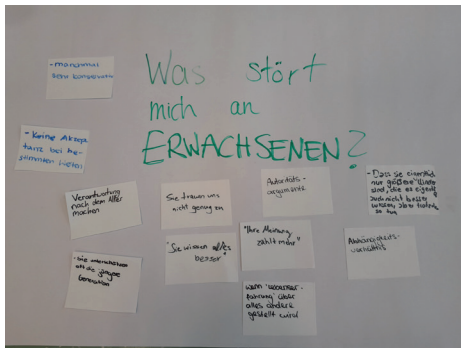 Was stört
mich an
ERWACHSENEN?
- manchmal
sehr konservativ
- Keine Akzep
tanz bei be-
stimmten
Verantwortung
nach dem Alter
machen
Sie trauen uns
nicht genug zu
Autoritäts-
argumente
- Dass sie eigentlich
nur größere Kinder
sind, die es eigentl.
auch nicht besser
wissen, aber trotzdem
so tun
- Sie unterschätzen
oft die jüngere
Generation
"Sie wissen alles
besser"
"Ihre Meinung
zählt mehr"
Abhängigkeits-
verhältnis
wenn "Lebenser-
fahrung" über
alles andere
gestellt wird